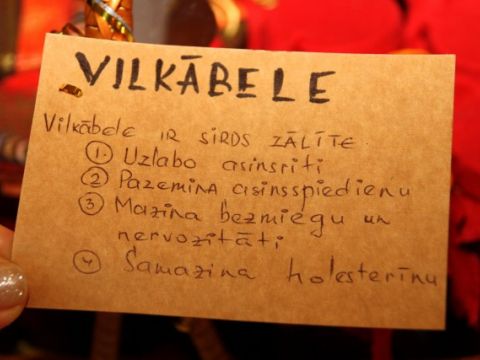 VILKĀBELE
Vilkābele IR SIRDS ZĀLĪTE
1. Uzlabo asinsriti
2. Pazemina asinsspiedienu
3. Mazina bezmiegu un
nervozitāti
4 Samazina holesterīnu